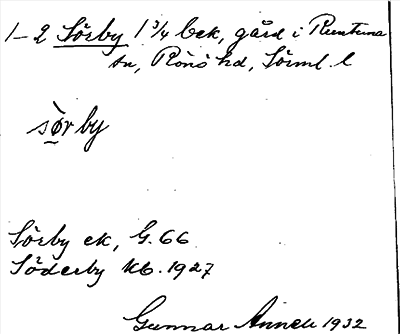 1-2 Sörby 1 3/4 bek, gård i Runtuna
sn, Rönö hd, Sörml. l
sø̀r by
Sörby ek, G. 66
Söderby kb. 1927
Gunnar Annell 1932